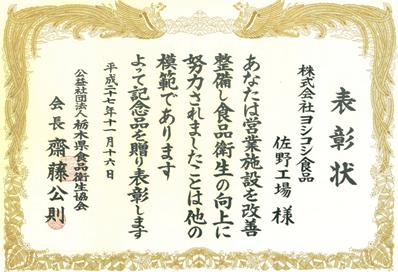 表彰状
株式会社ヨシコン食品
佐野工場 様
あなたは営業施設を改善
整備し食品衛生の向上に
努力されましたことは他の
模範であります
よって記念品を贈り表彰します
平成二十七年十一月十六日
公益社団法人栃木県食品衛生協会
会長 齋藤公則